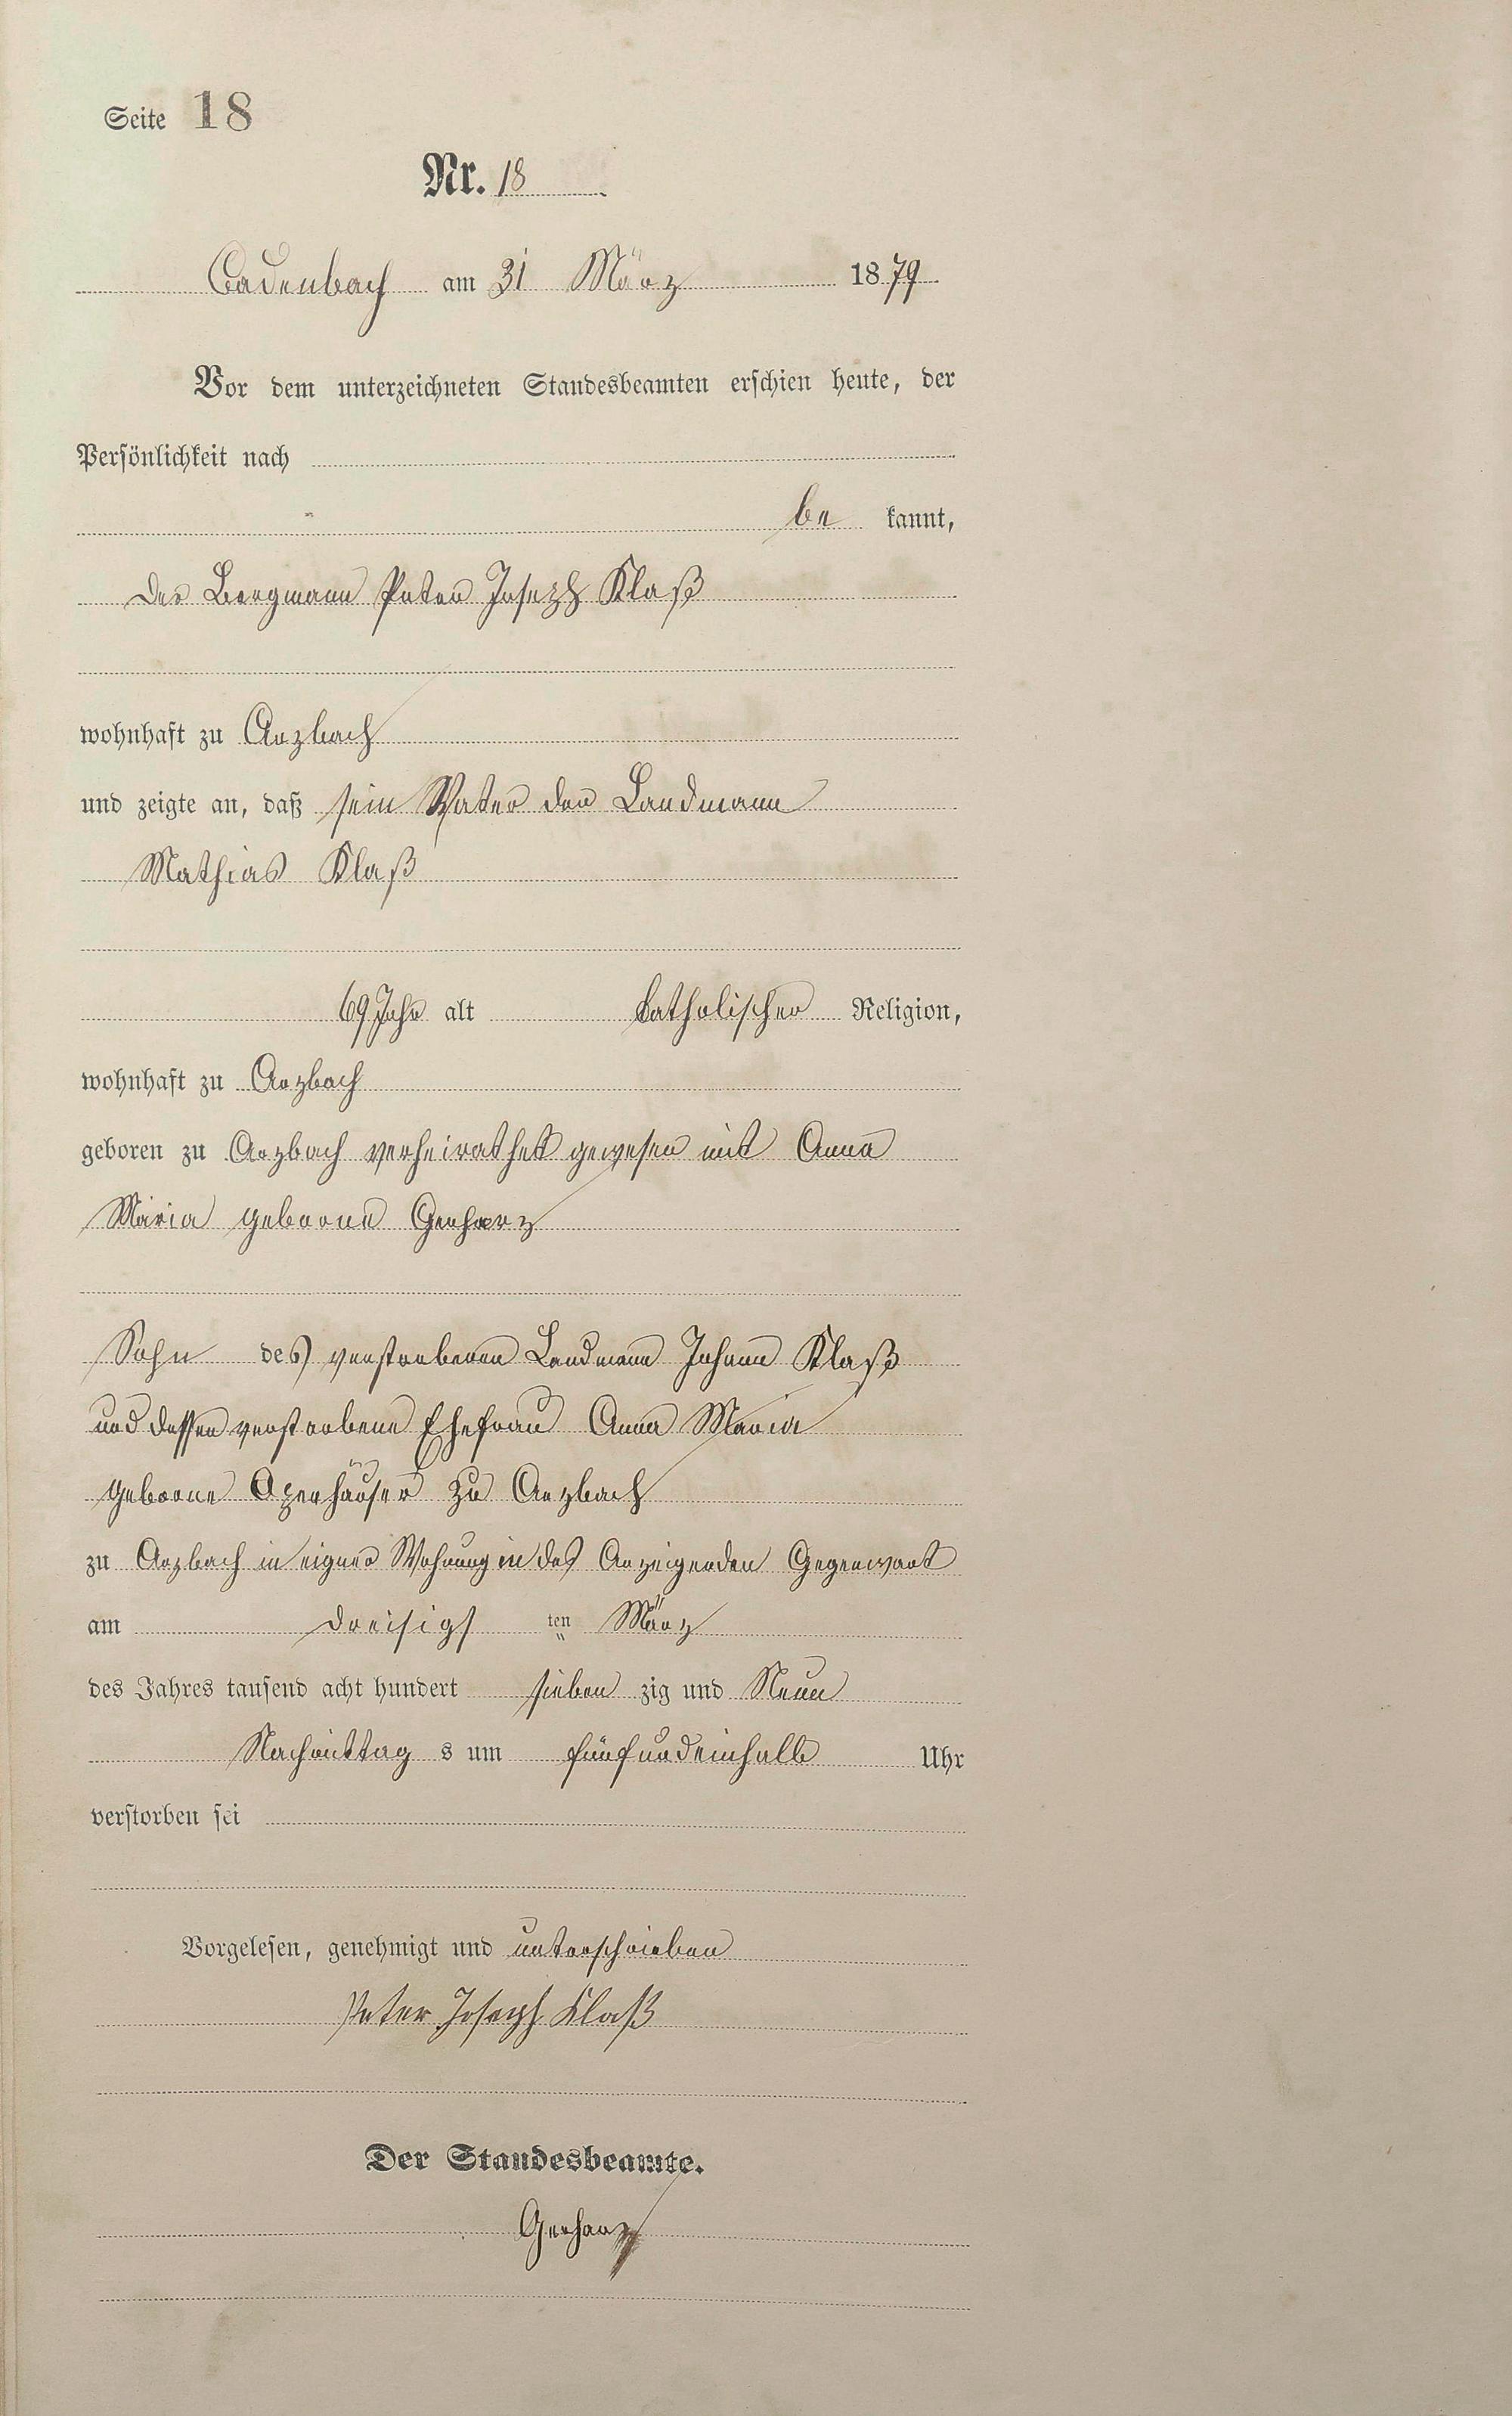 Seite 18
Nr. 18
Cadenbach am 31 März 1879
Vor dem unterzeichneten Standesbeamten erschien heute, der
Persönlichkeit nach
be kannt,
der Bergmann Peter Joseph Klaß
wohnhaft zu Arzbach
und zeigte an, daß sein Vater der Landmann
Mathias Klaß
69 Jahr alt katholischer Religion,
wohnhaft zu Arzbach
geboren zu Arzbach verheirathet gewesen mit Anna
Maria geborne Gerharz
Sohn des verstorbenen Landmann Johann Klaß
und dessen verstorbene Ehefrau Anna Maria
geborne zu Arzbach
zu Arzbach in eigner Wohnung in des Anzeigenden Gegenwart
am dreisigs ten März
des Jahres tausend acht hundert sieben zig und Neun
Nachmittag s um fünfundeinhalb Uhr
verstorben sei
Vorgelesen, genehmigt und unterschrieben
Peter Joseph Klaß
Der Standesbeamte.
Gerharz